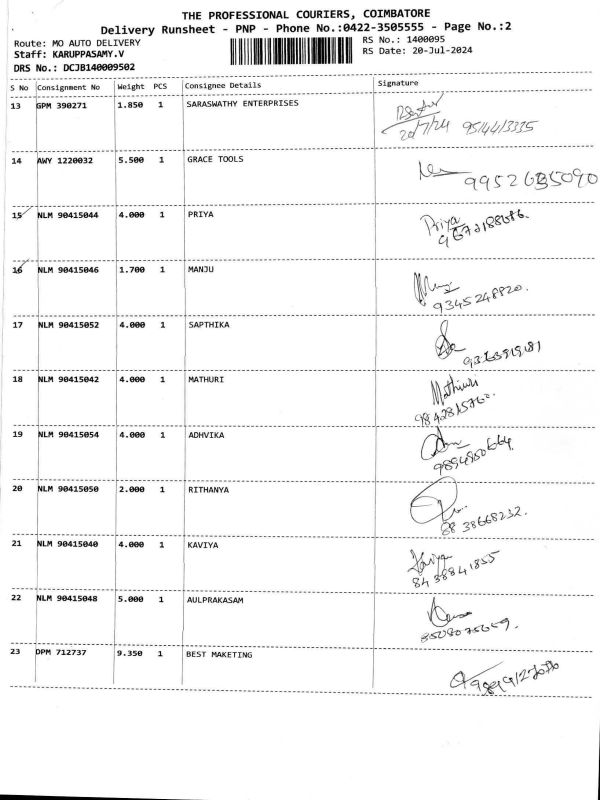 THE PROFESSIONAL COURIERS, COIMBATORE
Delivery Runsheet - PNP - Phone No.:0422-3505555 - Page No.:2
Route: MO AUTO DELIVERY RS No.: 1400095
Staff: KARUPPASAMY.V RS Date: 20-Jul-2024
DRS No.: DCJB140009502
S No Consignment No Weight PCS Consignee Details Signature
13 GPM 390271 1.850 1 SARASWATHY ENTERPRISES
20/7/24
14 AWY 1220032 5.500 1 GRACE TOOLS
15 NLM 90415044 4.000 1 PRIYA
Priya
16 NLM 90415046 1.700 1 MANJU
9345248820.
17 NLM 90415052 4.000 1 SAPTHIKA
9363919181
18 NLM 90415042 4.000 1 MATHURI
Mathuri
19 NLM 90415054 4.000 1 ADHVIKA
9894950664.
20 NLM 90415050 2.000 1 RITHANYA
88 38668232.
21 NLM 90415040 4.000 1 KAVIYA
Kaviya
8438841855
22 NLM 90415048 5.000 1 AULPRAKASAM
23 DPM 712737 9.350 1 BEST MAKETING